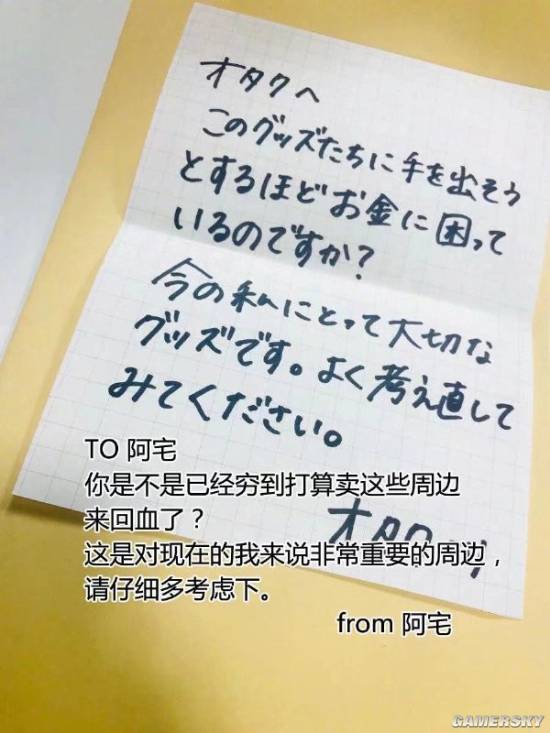 オタクへ
このグッズたちに手を出そう
とするほどお金に困って
いるのですか？
今の私にとって大切な
グッズです。よく考え直して
みてください。
オタク
TO 阿宅
你是不是已经穷到打算卖这些周边
来回血了？
这是对现在的我来说非常重要的周边，
请仔细多考虑下。
from 阿宅
GAMERSKY